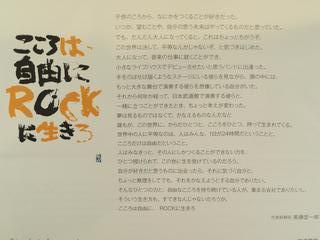 こころは、
自由に、
ROCK
に生きろ
子供のころから、なにかをつくることが好きだった。
いつか、望むことや、自分の思う未来はやってくるものだと思っていた。
でも、だんだん大人になってくると、これはちょっとちがうぞ、
この世界は決して、平等なんかじゃないぞ、と気づきはじめた。
大人になって、音楽の仕事に就くことができ、
小さなライブハウスでデビューさせたいと思うバンドに出逢った。
手をのばせば届くようなステージにいる彼らを見ながら、頭の中には、
もっと大きな舞台で演奏する彼らを想像している自分がいた。
それから何年か経って、日本武道館で演奏する彼らと、
一緒に立つことができたとき、ちょっと考えが変わった。
夢は見るものではなく、かなえるものなんだなと
誰もが、この世界に、からだひとつと、こころをひとつ、持って生まれてくる。
世界中の人に平等なのは、人はみんな、1日が24時間だということと、
こころだけは自由だということ。
人はみなきっと、その人にしかつくることができない力を、
ひとつ授けられて、この世に生を受けているのだろう。
自分が好きだと思うものに出会ったら、それに気づく自分と、
ちょっと無理をしてでも、それをかなえようとする自分でありたい。
そんなひとつの力と、自由なこころを持ち続けている人が、集まる会社でありたい。
そういう生き方も、すてきなんじゃないだろうか。
こころは自由に、ROCKに生きろ
代表取締役